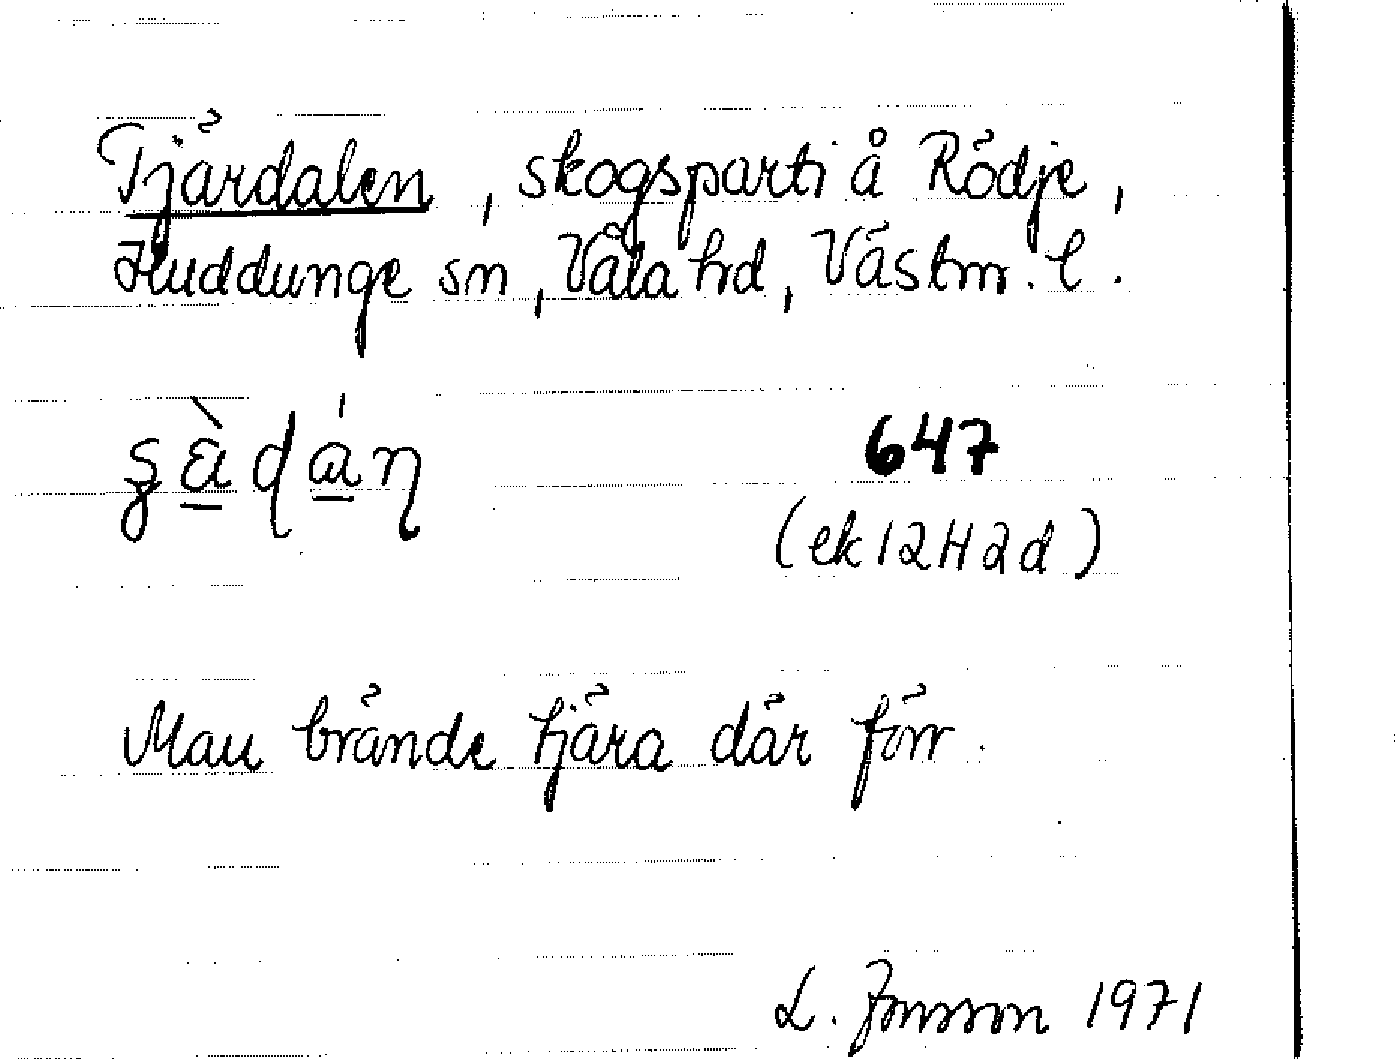 Tjärdalen, skogsparti å Rödje,
Huddunge sn, Våla hd, Västm. l.
647
(ek 12H2d)
Man brände tjära där förr.
L. Jonsson 1971